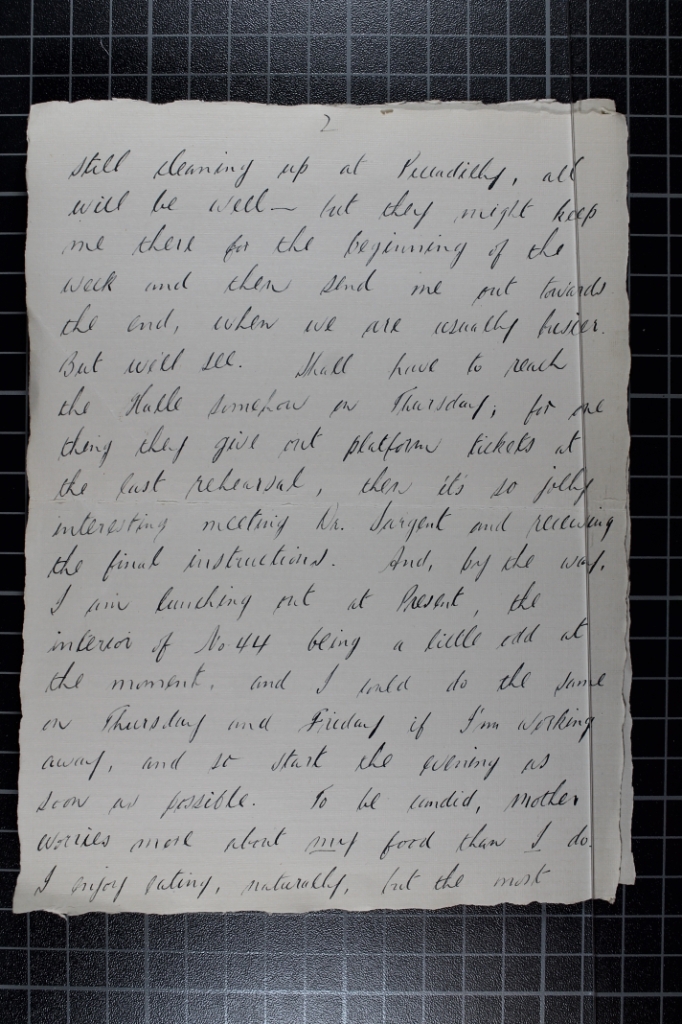 2
still cleaning up at Piccadilly, all
will be well — but they might keep
me there for the beginning of the
week and then send me out towards
the end, when we are usually busier.
But will see. Shall have to reach
the Halle somehow on Thursday, for one
thing they give out platform tickets at
the last rehearsal, then it's so jolly
interesting meeting Dr. Sargent and receiving
the final instructions. And, by the way,
I am lunching out at Present, the
interior of No 44 being a little odd at
the moment, and I could do the same
on Thursday and Friday if I'm working
away, and so start the evening as
soon as possible. To be candid, mother
worries more about my food than I do.
I enjoy eating, naturally, but the most